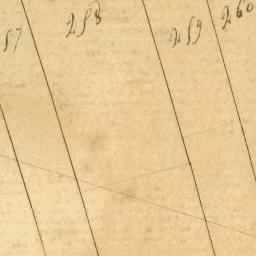 57
258
259
260